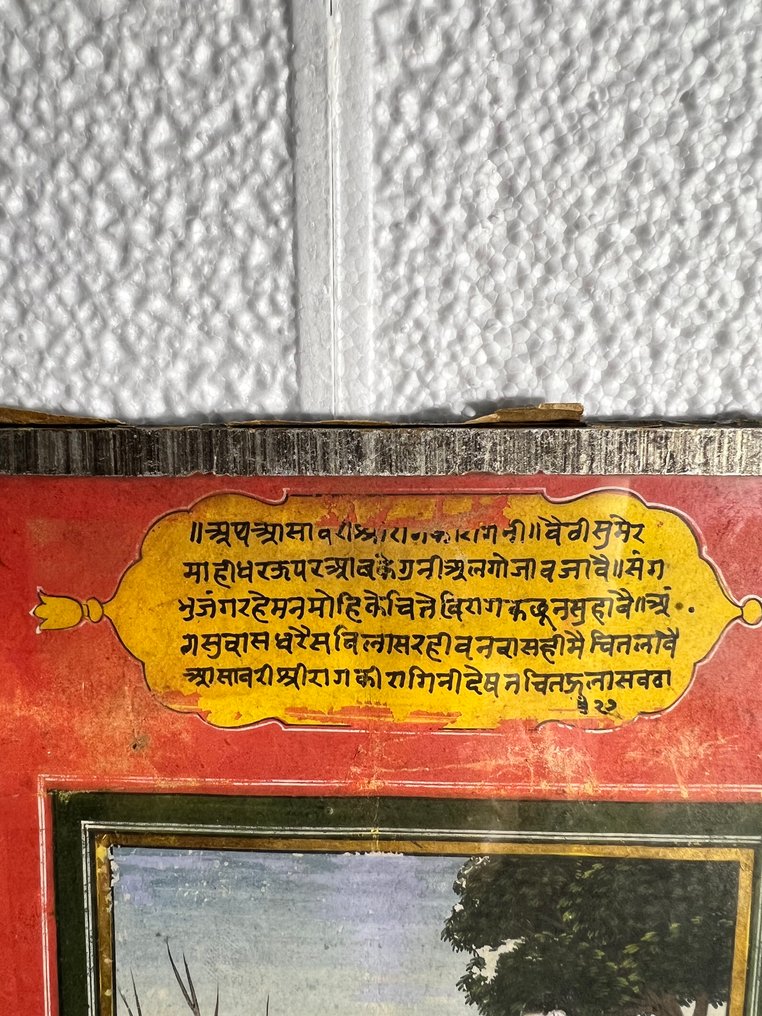 ॥अथ आसावरी श्रीरागकी रागनी॥ बैठी सुमेर
माहीधर ऊपर आवकै ग्रनी अलगोजा बजावै॥ संग
भुजंग रहे मन मोहि के चित्ते विराग कछू न सुहावै॥ अं
ग सुवास धरै सविलास रही वनवासही मै चित लावै
आसावरी श्रीराग की रागिनी देषन चित हुलास बढा
वै २७